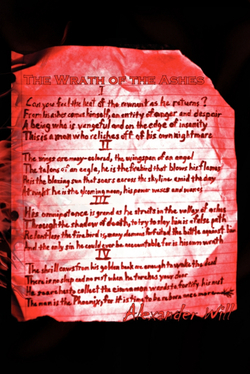 The Wrath of the Ashes
I
Can you feel the heat of the remnant as he returns?
From his ashes comes himself, an entity of anger and despair
A being who is vengeful and on the edge of insanity
This is a man who relishes off of his own nightmare
II
The wings are many-colored, the wingspan of an angel
The talons of an eagle, he is the firebird that blows his flames
He is the blazing sun that soars across the skyline amid the day
At night he is the gleaming moon, his power waxes and wanes
III
His omnipotence is grand as he struts in the valley of ashes
Through the shadow of death, to try to slay him is a false path
Relentless the firebird is, many demons forfeited the battle against him
And the only sin he could ever be accountable for is his own wrath
IV
The shrill caws from his golden beak are enough to wake the dead
There is no sleep and no rest when he torches your
He searches to collect the cinnamon wands to fortify his nest
The man is the Phoenix, for it is time to be reborn once more
Alexander Will